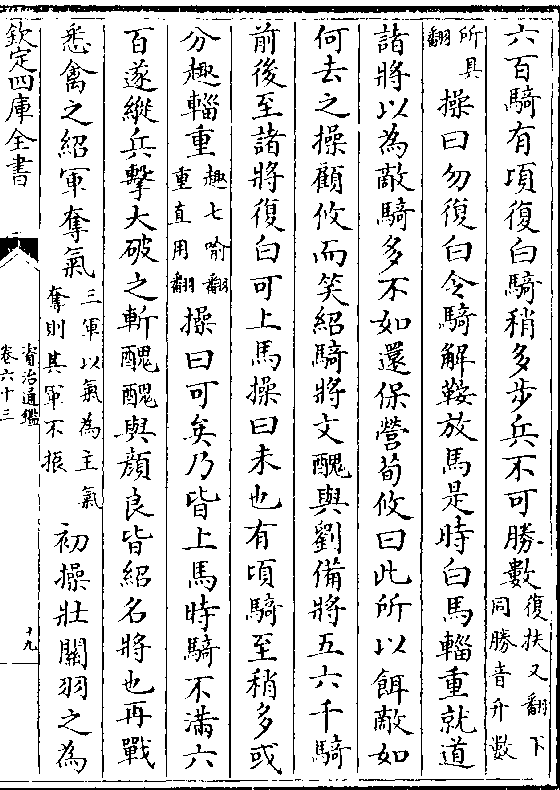 六百騎有頃復白騎稍多步兵不可勝數復扶又翻下同勝音升數
所具翻操曰勿復白令騎解鞍放馬是時白馬輜重就道
諸將以為敵騎多不如還保營荀攸曰此所以餌敵如
何去之操顧攸而笑紹騎將文醜與劉備將五六千騎
前後至諸將復白可上馬操曰未也有頃騎至稍多或
分趣輜重趣七喻翻重直用翻操曰可矣乃皆上馬時騎不滿六
百遂縱兵擊大破之斬醜醜與顔良皆紹名將也再戰
悉禽之紹軍奪氣三軍以氣為主氣奪則其軍不振初操壯關羽之為
欽定四庫全書
資治通鑑
卷六十三
十九